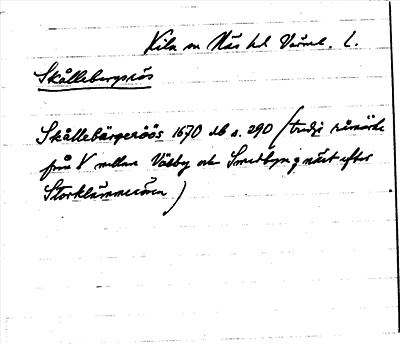 Kila sn Näs hd Värml. l.
Skållebergsrös
Skållebärgeröös 1670 db s. 290 (tredje råmärke
från V mellan Välby och Smedbyn, näst efter
Storklämmeröen)